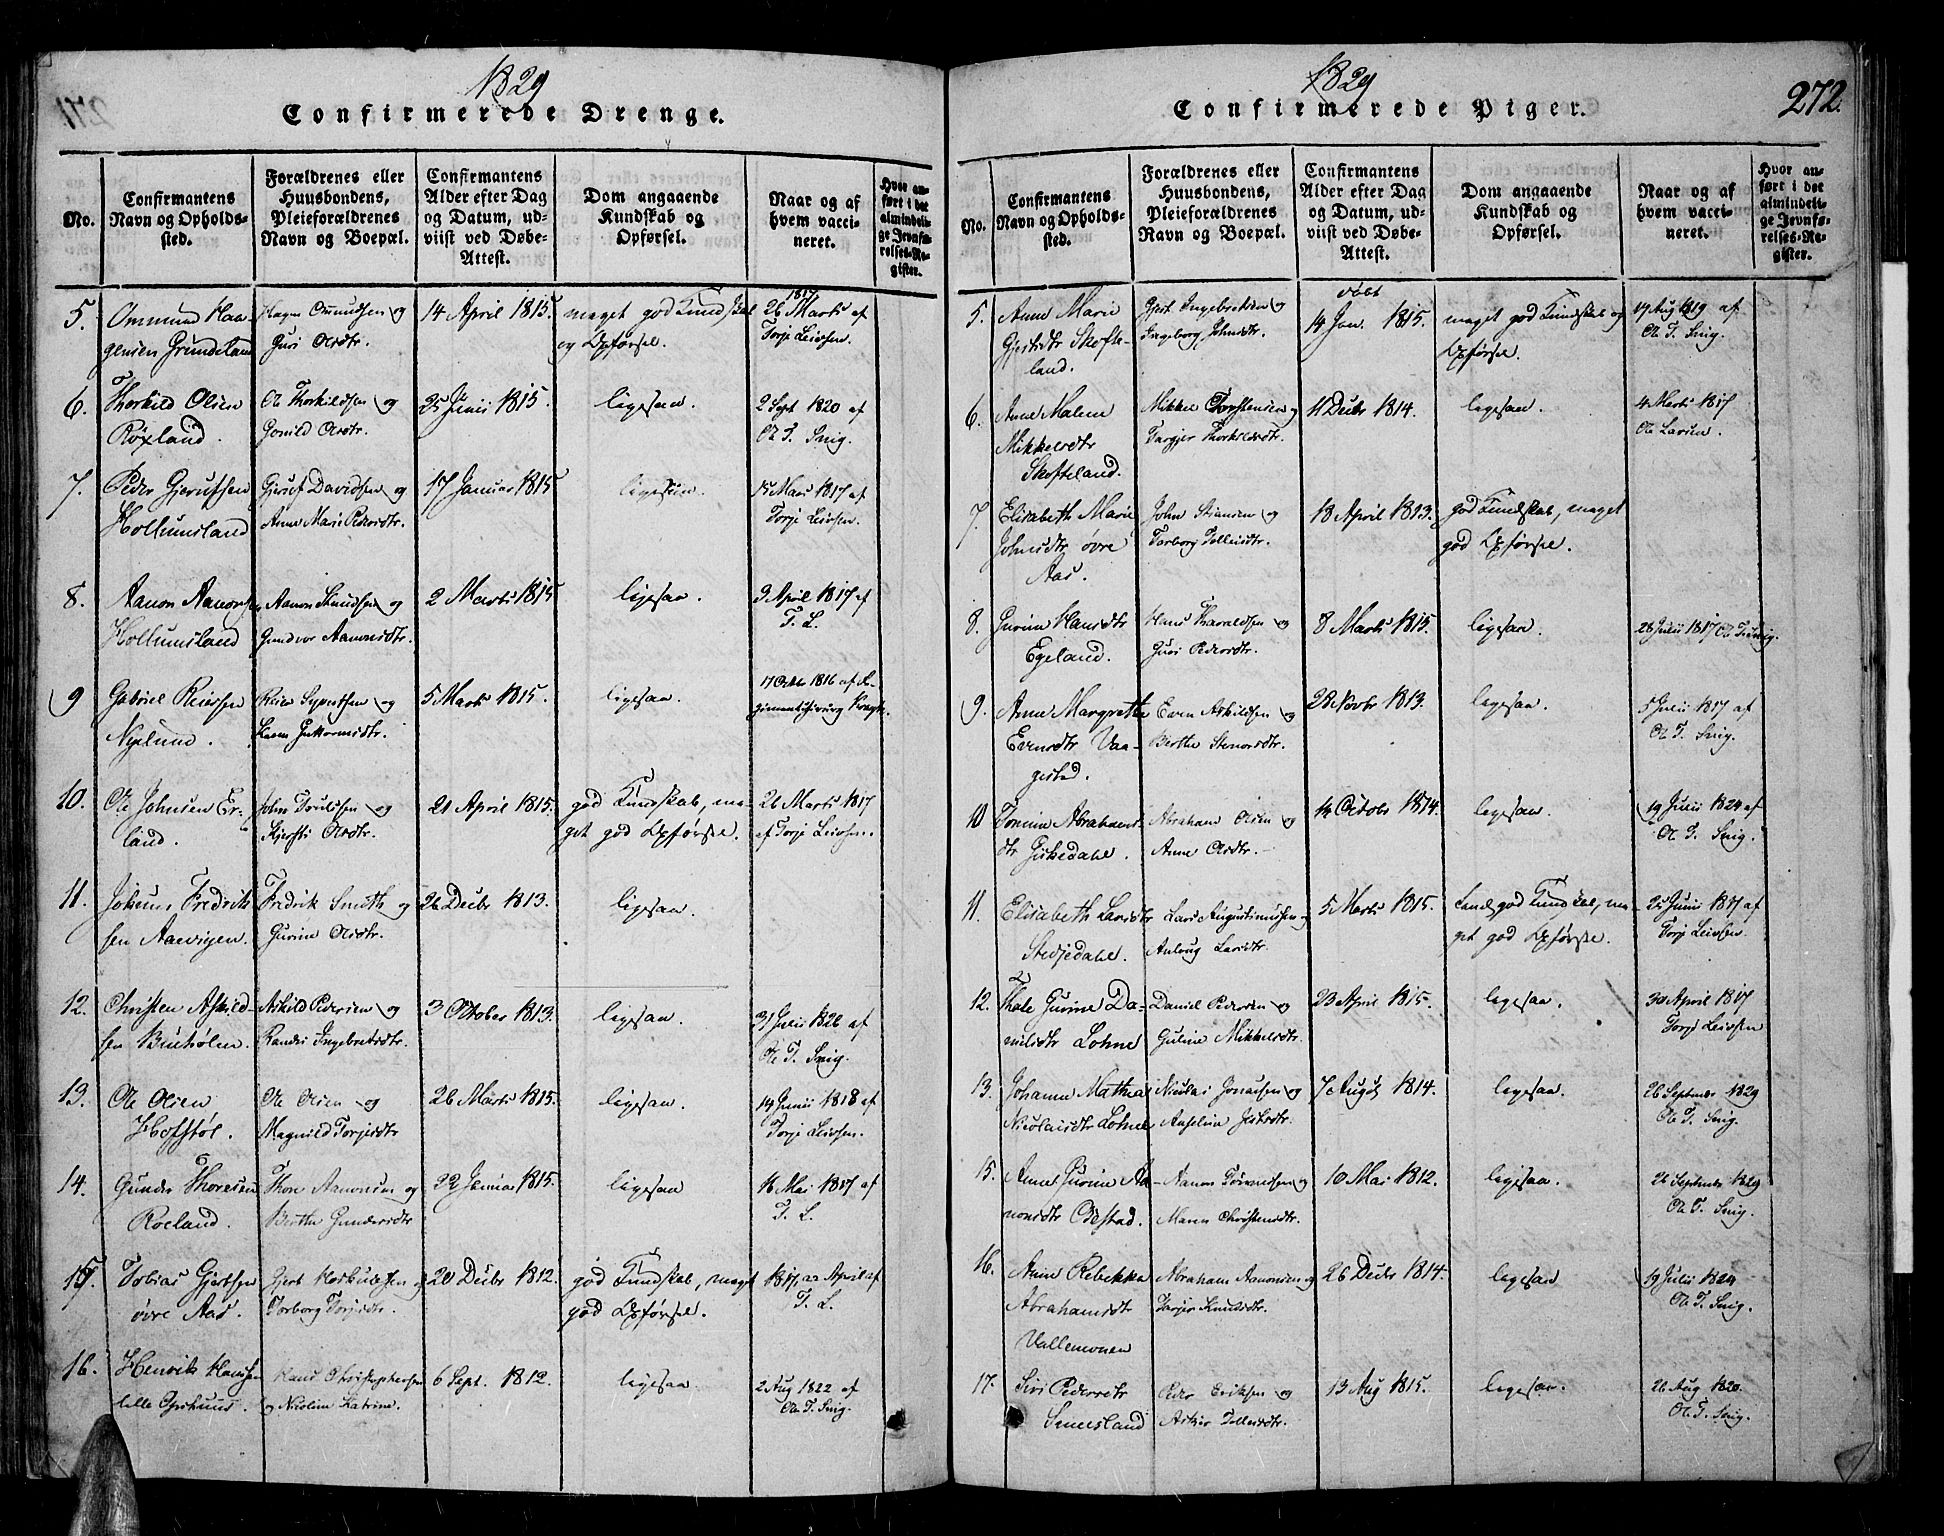 1829
Confirmerede Drenge.
No.
Confirmantens
Navn og Opholds-
sted.
Forældrenes eller
Huusbondens,
Pleieforældrenes
Navn og Boepæl.
Confirmantens
Alder efter Dag
og Datum, ud-
viist ved Døbe-
Attest.
Dom angaaende
Kundskab og
Opførsel.
Naar og af
hvem vacci-
neret.
Hvor an-
ført i det
almindeli-
ge Jevnfø-
relses-Re-
gister.
5.
Ommund Haa-
gensen Grundeland
Hagen Omundsen og
Guri Olsdtr.
14 April 1815.
maget god Kundskab
og Opførsel.
1817
26 Marts af
Torje Leivsen.
6.
Thorkild Olsen
Røxland.
Ole Thorkildsen og
Gonild Olsdtr.
25 Junii 1815.
ligesaa.
2 Sept 1820 af
Ole T. Snig.
7.
Peder Gjerufsen
Hollumsland
Gjeruf Davidsen og
Anne Marie Pedersdtr.
17 Januar 1815
ligesaa.
15 Marts 1817 af
Torje Leivsen.
8.
Aanon Aanons
Hollumsland
Aanon Knudsen og
Gundvor Aanonsdtr.
2 Marts 1815
ligesaa.
9 April 1817 af
T. L.
9
Gabriel Reiersen
Nyelund.
Reier Syvertsen og
5 Marts 1815.
ligesaa.
17 Octbr 1816 af
10.
Ole Johnsen Er-
land.
John Trulssen og
Kjersti Olsdtr.
21 April 1815.
god Kundskab, ma-
get god Opførsel.
26 Marts 1817
af Torje Leivsen.
11.
Johannes Fredrik-
sen Aaevigen.
Fredrik Smith og
Gurine Olsdtr.
26 Decbr 1813.
ligesaa.
12.
Christen Askild-
sen
Askild Pedersen og
Randi Ingebretsdtr.
3 October 1813.
ligesaa.
31 Julii 1826 af
Ole T. Snig.
13.
Ole Olsen
Hofstøl.
Ole Olsen og
Magnild Torjersdtr
26 Marts 1815.
ligesaa.
14 Junii 1818 af
Torje Leivsen.
14.
Gunder Thoresen
Roeland.
Thore Aanonsen og
Berthe Gundersdtr
22 Januar 1815.
ligesaa
16 Mai 1817 af
T. L.
15.
Tobias Gjertsen
øvre Aas.
Gjert Hoskuldsen og
Torborg Torjusdtr.
20 Decbr 1812.
god Kundskab, maget
god Opførsel.
1817 22 April af
T. L.
16.
Henrik Hansen
lille
Hans Christophersen
og Nicoline Katrine.
6 Sept. 1812.
ligesaa.
2 Aug 1822 af
Ole T. Snig.
1829
Confirmerede Piger.
272.
No.
Confirmantens
Navn og Opholds-
sted.
Forældrenes eller
Huusbondens,
Pleieforældrenes
Navn og Boepæl.
Confirmantens
Alder efter Dag
og Datum, ud-
viist ved Døbe-
Attest.
Dom angaaende
Kundskab og
Opførsel.
Naar og af
hvem vacci-
neret.
Hvor an-
ført i det
almindeli-
ge Jevnfø-
relses-Re-
gister.
5.
Anne Marie
Gjertsdtr Skofte-
land.
Gjert Ingebretsen og
Ingeborg Johnsdtr.
døbt
14 Jan. 1815.
maget god Kundskab og
Opførsel.
17 Aug 1819 af
Ole T. Snig.
6.
Anne Malene
Mikkelsdtr
Skofteland.
Mikkel Torstensen og
Targjer Thorkildsdtr.
11 Decbr 1814.
ligesaa.
4 Marts 1817
Ole Larsen.
7.
Elisabeth Marie
Johnsdtr øvre
Aas.
John og
Torborg Tollevsdtr.
18 April 1813.
god Kundskab, maget
god Opførsel.
8.
Gurine Hansdtr
Egeland.
Hans Haraldsen og
Guri Pedersdtr.
8 Marts 1815.
ligesaa.
28 Julii 1817 Ole T. Snig.
9.
Anne Margrethe
Evensdtr Vaa-
gestad.
Even Askildsen og
Berthe Stenersdtr.
28 Novbr 1813.
ligesaa.
5 Julii 1817 af
Ole T. Snig.
10
Tomine Abrahams-
dtr
Abraham Olsen og
Anne Olsdtr.
14 Octobr 1814.
ligesaa.
19 Julii 1824 af
Ole T. Snig.
11.
Elisabeth Larsdtr
Stedjedahl.
Lars Augustinussen og
Anlaug Larsdtr.
5 Marts 1815.
god Kundskab, ma-
get god Opførsel.
25 Junii 1817 af
Torje Leivsen.
12.
Thale Gurine Da-
nielsdtr Lohne
Daniel Pedersen og
Guline Mikkelsdtr.
23 April 1815.
ligesaa.
30 April 1817
Torje Leivsen
13.
Johanne Mathea
Nicolaisdtr Lohne
Nicolai Jonassen og
7 August 1814.
ligesaa.
26 September 1829
Ole T. Snig.
15.
Anne Gurine Aa-
nonsdtr Odestad.
Aanon og
Maren Christensdtr.
10 Mai 1812.
ligesaa.
26 September 1829
Ole T. Snig.
16.
Anne Rebekka
Abrahamsdtr
Vallemonen
Abraham Aanonsen og
Targjer Knudsdtr.
26 Decbr 1814.
ligesaa
19 Julii 1824
Ole T. Snig.
17.
Siri Pedersdtr
Smeesland
Peder Eriksen og
Tollevsdtr.
13 Aug 1815.
ligesaa.
26 Aug 1820.
Ole T. Snig.